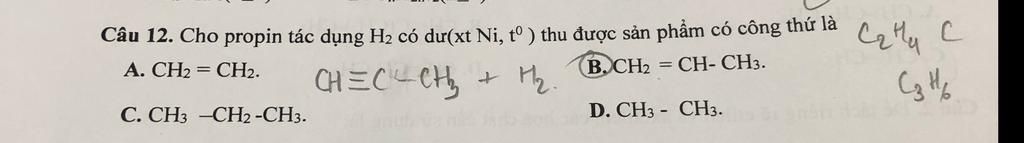 Câu 12. Cho propin tác dụng H2 có dư(xt Ni, t⁰ ) thu được sản phẩm có công thứ là
C2H4 C
A. CH2 = CH2.
CH≡C-CH3 + H2.
B. CH2 = CH- CH3.
C3H6
C. CH3 –CH2 -CH3.
D. CH3 - CH3.